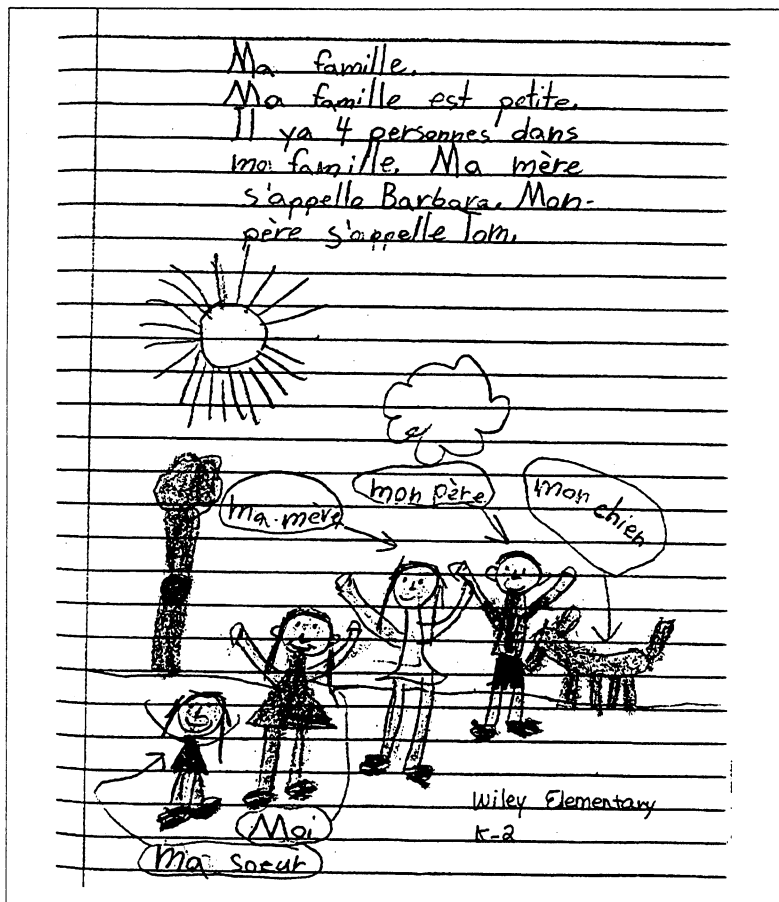 Ma famille.
Ma famille est petite.
Il ya 4 personnes dans
ma famille. Ma mère
s'appelle Barbara. Mon-
père s'appelle Tom.
ma mère
mon père
mon chien
Moi
ma soeur
Wiley Elementary
K-2